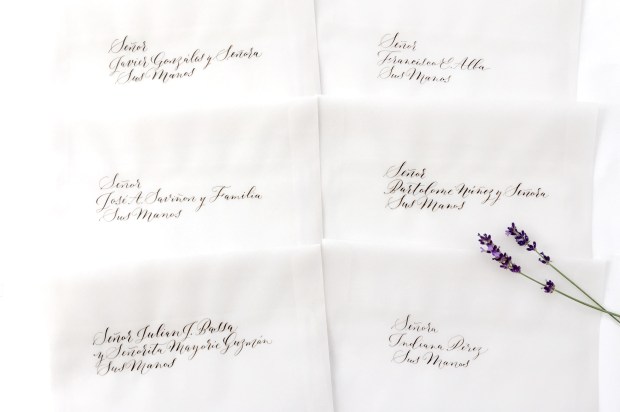 Señor
Javier González y Señora
Sus Manos
Señor
Francisco & Alba
Sus Manos
Señor
José A. Saviñon y Familia
Sus Manos
Señor
Bartolome Núnez y Señora
Sus Manos
Señor Julian J. Bassa
y Señorita Mayorie Guzmán
Sus Manos
Señora
Indiana Pérez
Sus Manos